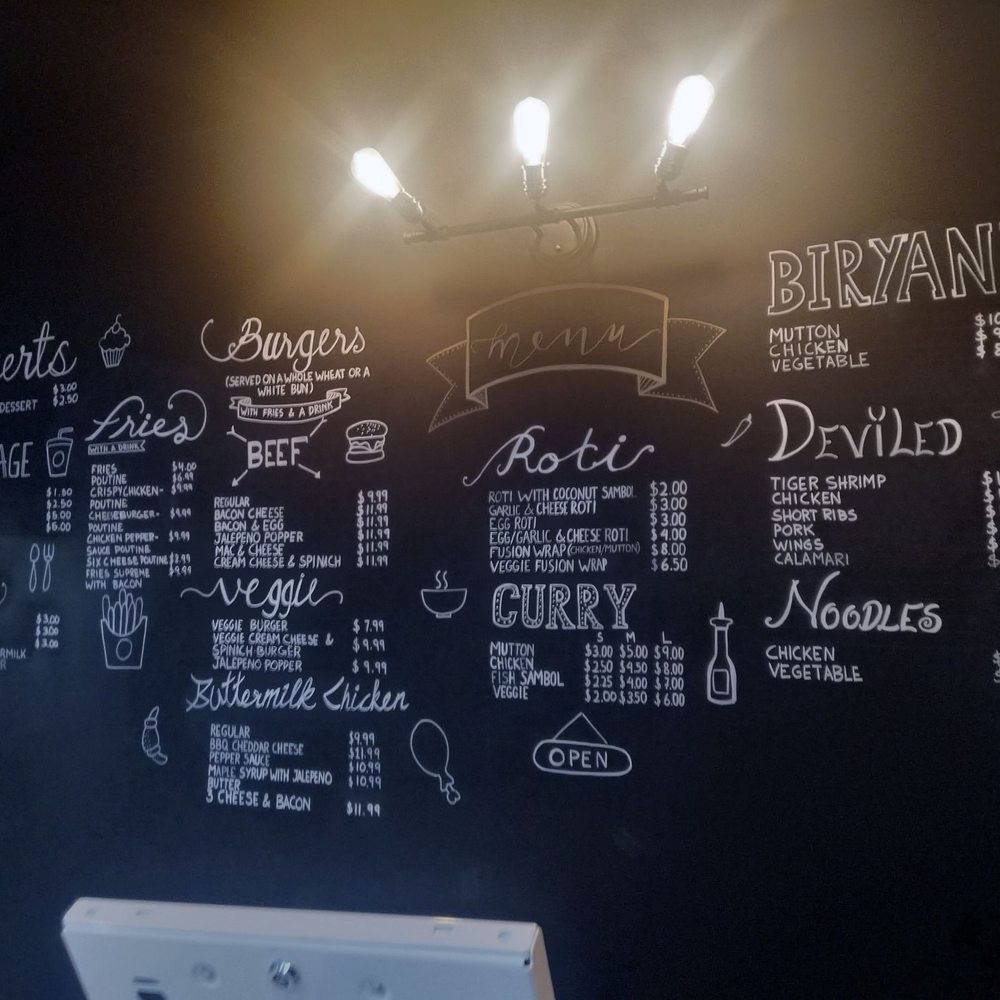 erts
$3.00
DESSERT $2.50
AGE
$1.50
$2.50
$5.00
$5.00
$3.00
$3.00
$3.00
Fries
WITH A DRINK
FRIES $4.00
POUTINE $6.99
CRISPY CHICKEN- $9.99
POUTINE
CHEESEBURGER- $9.99
POUTINE
CHICKEN PEPPER- $9.99
SAUCE POUTINE
SIX CHEESE POUTINE
FRIES SUPREME $9.99
WITH BACON
Burgers
(SERVED ON A WHOLE WHEAT OR A
WHITE BUN)
WITH FRIES & A DRINK
BEEF
REGULAR $9.99
BACON CHEESE $11.99
BACON & EGG $11.99
JALEPENO POPPER $11.99
MAC & CHEESE $11.99
CREAM CHEESE & SPINICH $11.99
Veggie
VEGGIE BURGER $7.99
VEGGIE CREAM CHEESE & $9.99
SPINICH BURGER
JALEPENO POPPER $9.99
Buttermilk Chicken
REGULAR $9.99
BBQ CHEDDAR CHEESE $11.99
PEPPER SAUCE $10.99
MAPLE SYRUP WITH JALEPENO $10.99
BUTTER
3 CHEESE & BACON $11.99
menu
Roti
ROTI WITH COCONUT SAMBOL $2.00
GARLIC & CHEESE ROTI $3.00
EGG ROTI $3.00
EGG/GARLIC & CHEESE ROTI $4.00
FUSION WRAP (CHICKEN/MUTTON) $8.00
VEGGIE FUSION WRAP $6.50
CURRY
S M L
MUTTON $3.00 $5.00 $9.00
CHICKEN $2.50 $4.50 $8.00
FISH SAMBOL $2.25 $4.00 $7.00
VEGGIE $2.00 $3.50 $6.00
OPEN
BIRYAN
MUTTON $10
CHICKEN
VEGETABLE
DEVILED
TIGER SHRIMP
CHICKEN
SHORT RIBS
PORK
WINGS
CALAMARI
NOODLES
CHICKEN
VEGETABLE